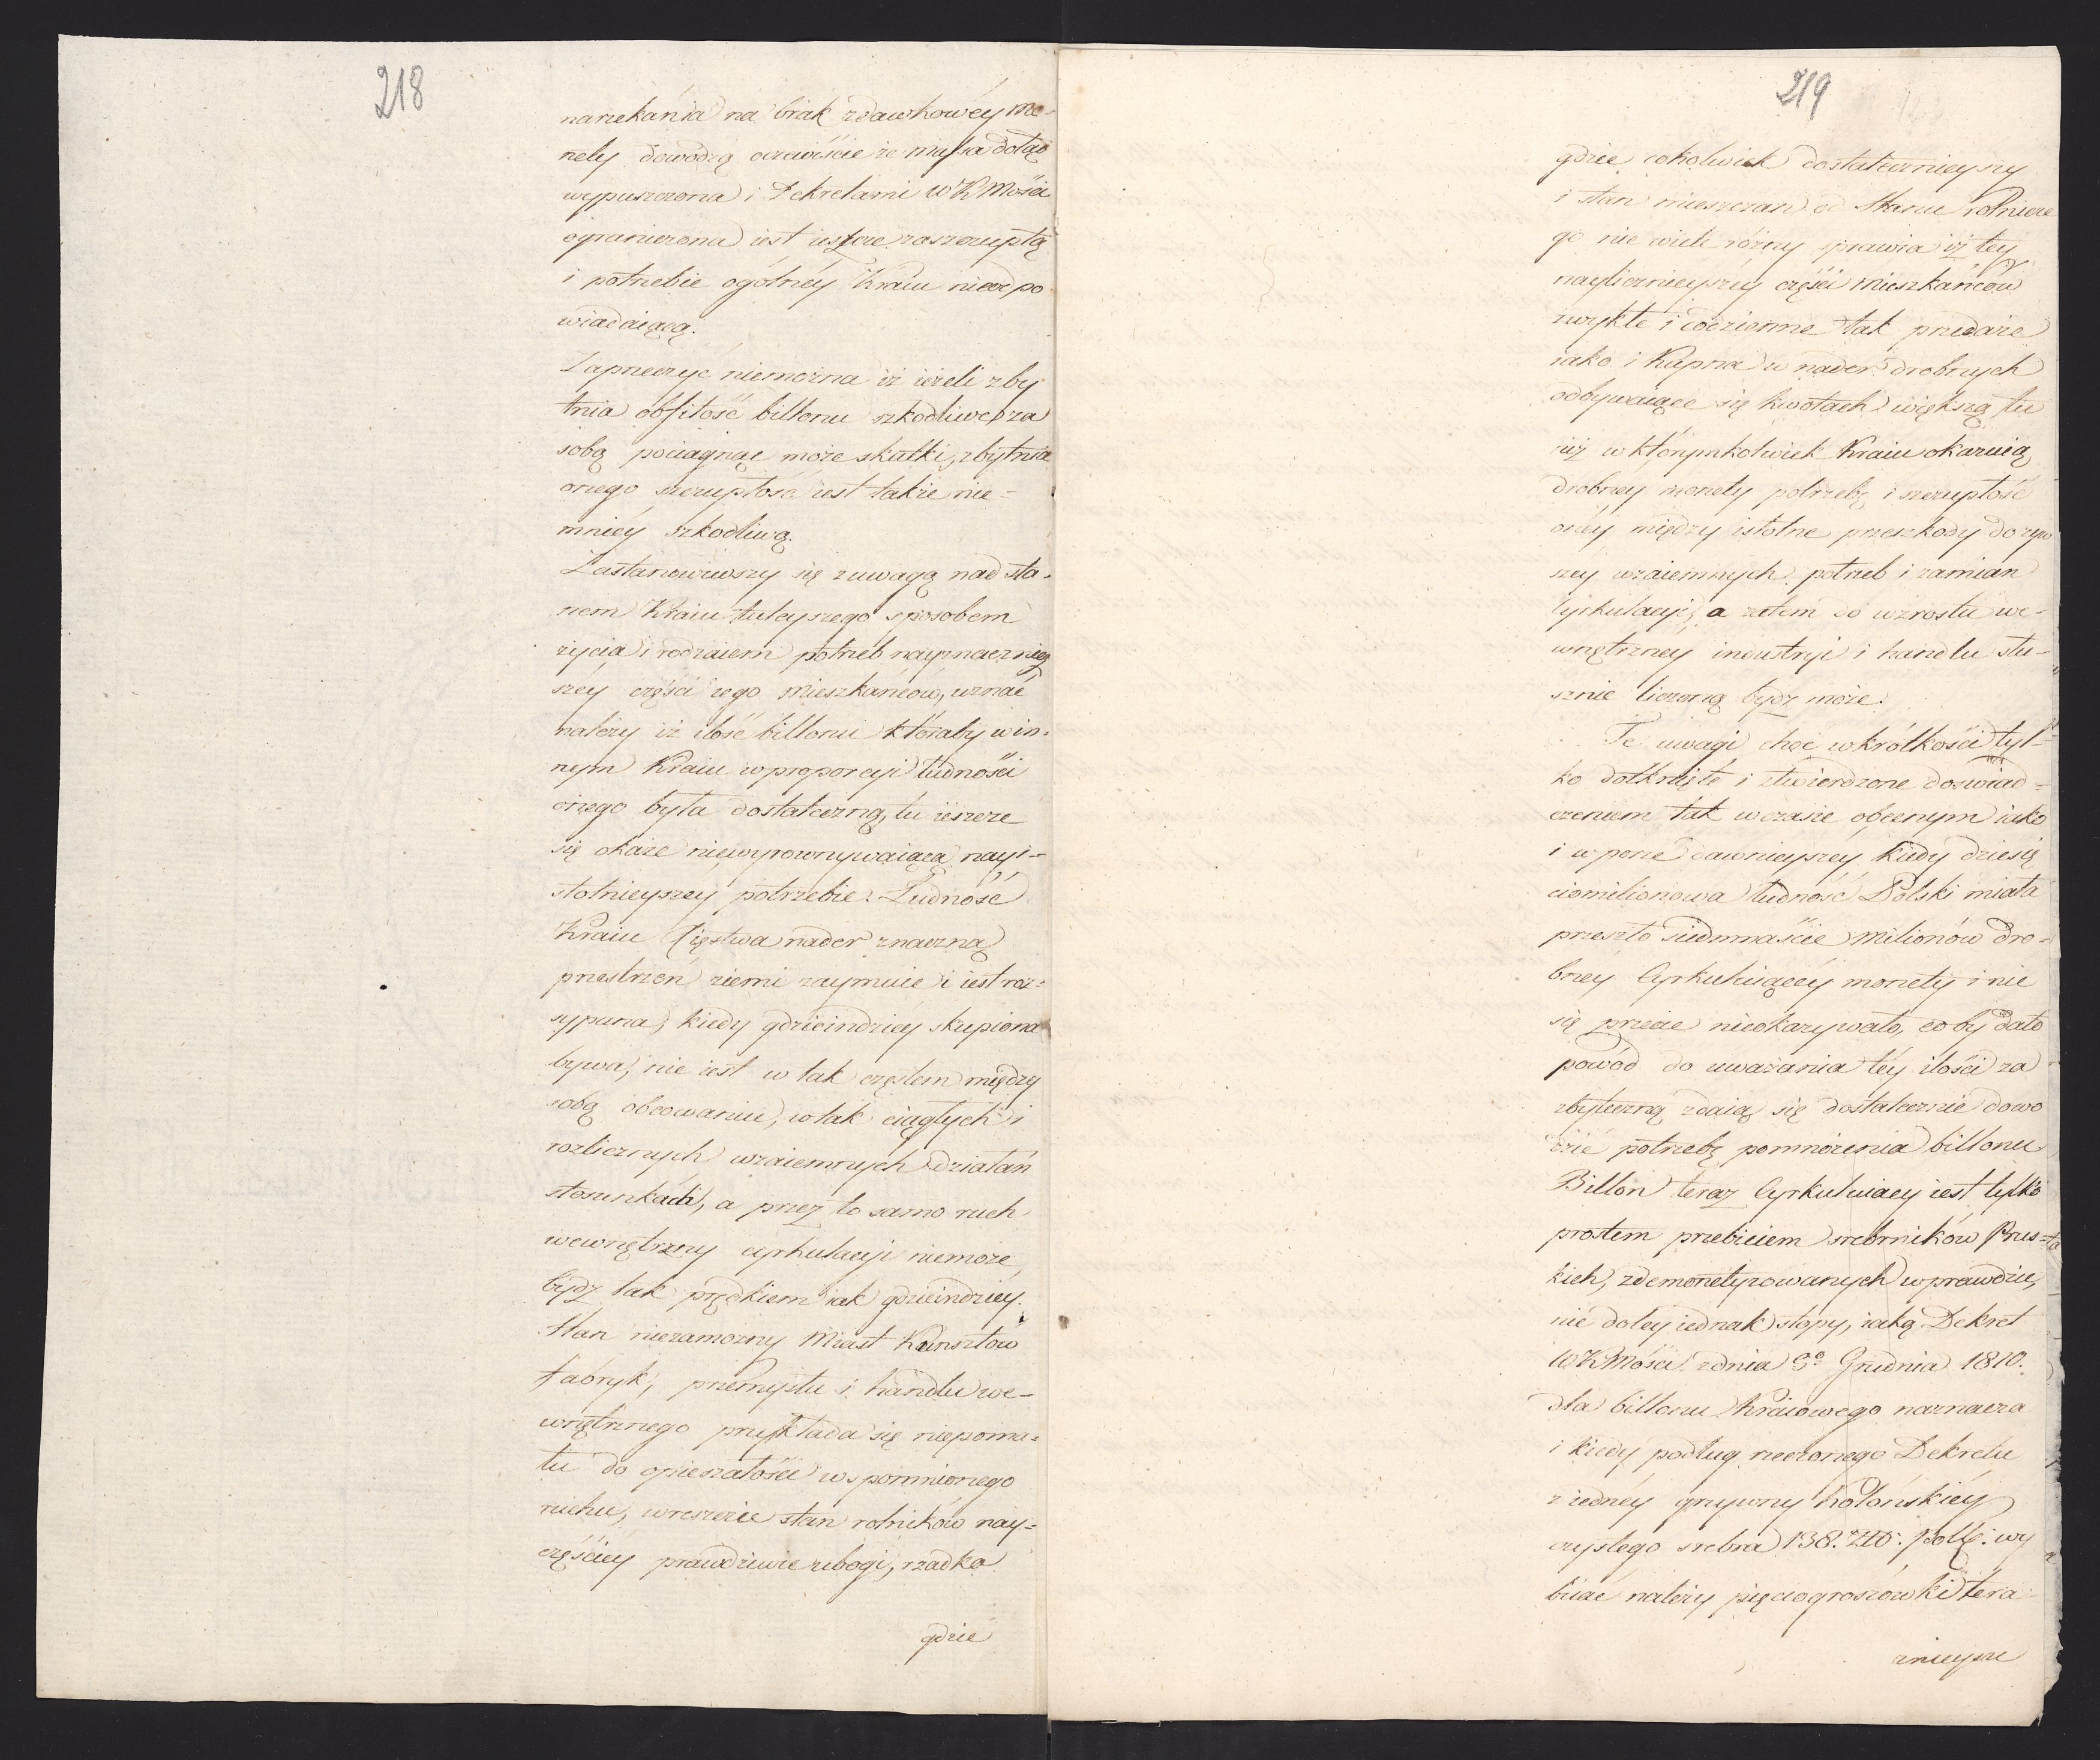 218
narzekania na brak zdawkowéy mo-
nety dowodzą oczewiście że massa dotąd
wypuszczona i Dekretami WKMości
ograniczona iest ieszcze zaszczupłą
i potrzebie ogólnéy Kraiu nieodpo
wiadaiącą.
Zaprzeczyć niemożna iż ieżeli zby
tnia obfitość billonu szkodliwe za
sobą pociągnąć może skutki, zbytnia
onego szczupłość iest także nie=
mniéy szkodliwą.
Zastanowiwszy się z uwagą nad sta=
nem Kraiu tuteyszego sposobem
życia i rodzaiem potrzeb nayznaczniey
széy części iego mieszkańców, uznać
należy iż ilość billonu któraby w in=
nym Kraiu w proporcyi ludności
onego była dostateczną, tu ieszcze
się okaże niewyrownywaiącą nayi=
stotnieyszéy potrzebie. Ludność
Kraiu Xięstwa nader znaczną
przestrzeń ziemi zaymuie i iest roz=
sypana, kiedy gdzieindziey skupiona
bywa, nie iest w tak częstem między
sobą obcowaniu, w tak ciągłych i
rozlicznych wzaiemnych działań
stosunkach, a przez to samo ruch
wewnętrzny cyrkulacyi niemoże
bydz tak prędkiem iak gdzieindziey.
Stan niezamożny Miast Kunsztow
fabryk, przemysłu i handlu we=
wnętrznego przykłada się niepoma=
łu do opieszałości wspomnionego
ruchu, wreszcie stan rolników nay=
częściéy prawdziwie ubogi, rzadko
gdzie
219
gdzie cokolwiek dostatecznieyszy
i stan mieszczan od Stanu rolnicze
go nie wiele różny sprawia iż tey
naylicznieyszey części mieszkańców
zwykłe i codzienne tak przedaże
iako i Kupna w nader drobnych
odbywaiące się kwotach większą tu
niż w którymkolwiek Kraiu okazuią
drobney monety potrzebę i szczupłość
onéy między istotne przeszkody do żyw
szey wzaiemnych potrzeb i zamian
Cyrkulacyi, a zatem do wzrostu we-
wnętrzney industryi i handlu słu-
sznie liczoną bydz może.
Te uwagi choć w krótkości tyl-
ko dotknięte i stwierdzone doswiad=
czeniem tak w czasie obecnym iako
i w porze dawnieyszey kiedy dziesię
ciomilionowa ludność Polski miała
przeszło siedmnaście milionów dro=
bnéy Cyrkuluiącéy monety i nie
się przecie nieokazywało, coby dało
powód do uważania téy ilości za
zbyteczną zdaią się dostatecznie dowo
dzić potrzebę pomnożenia billonu.
Billon teraz Cyrkuluiący iest tylko
prostem przebiciem srebrników Prus=
kich, zdemonetyzowanych wprawdzie,
nie do tey iednak stopy, iaką Dekret
WKMości z dnia Grudnia 1810.
dla billonu Kraiowego naznacza
i kiedy podług rzeczonego Dekretu
z iednéy grzywny kolońskiéy
czystego srebra 138. wy
biiać należy pięciogroszówki tera
znieysze